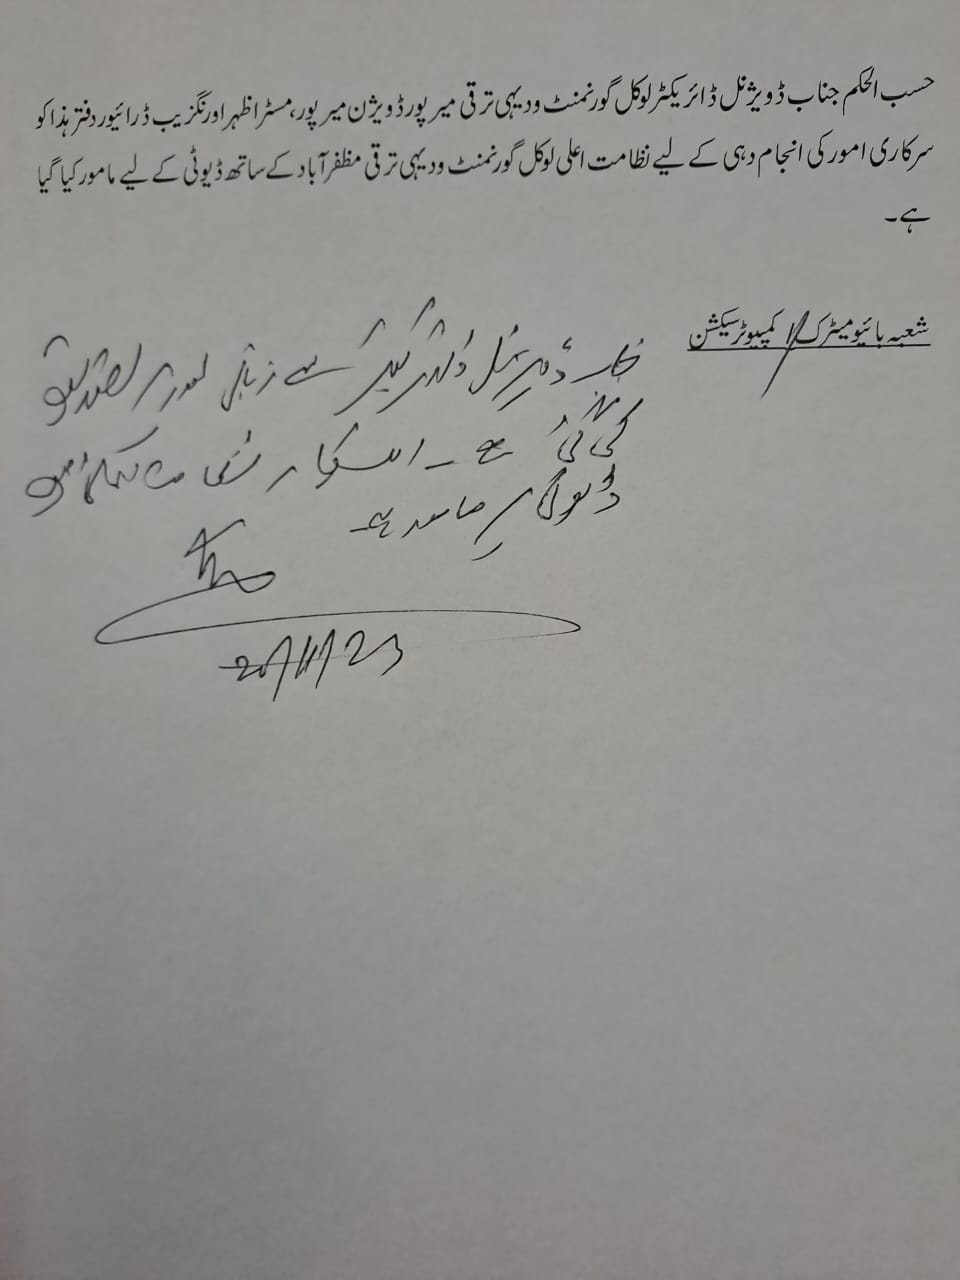 حسب الحکم جناب ڈویژنل ڈائریکٹر لوکل گورنمنٹ ودیہی ترقی میرپور ڈویژن میرپور، مسٹر اظہر اورنگزیب ڈرائیور دفتر ہذا کو
سرکاری امور کی انجام دہی کے لیے نظامت اعلی لوکل گورنمنٹ ودیہی ترقی مظفرآباد کے ساتھ ڈیوٹی کے لیے مامور کیا گیا
ہے۔
شعبہ بائیومیٹرک / کمپیوٹر سیکشن
جناب ڈویژنل ڈائریکٹر سے زبانی طور پر تصدیق
کی گئی ہے۔
ڈیوٹی پر مامور ہے۔
20/11/23